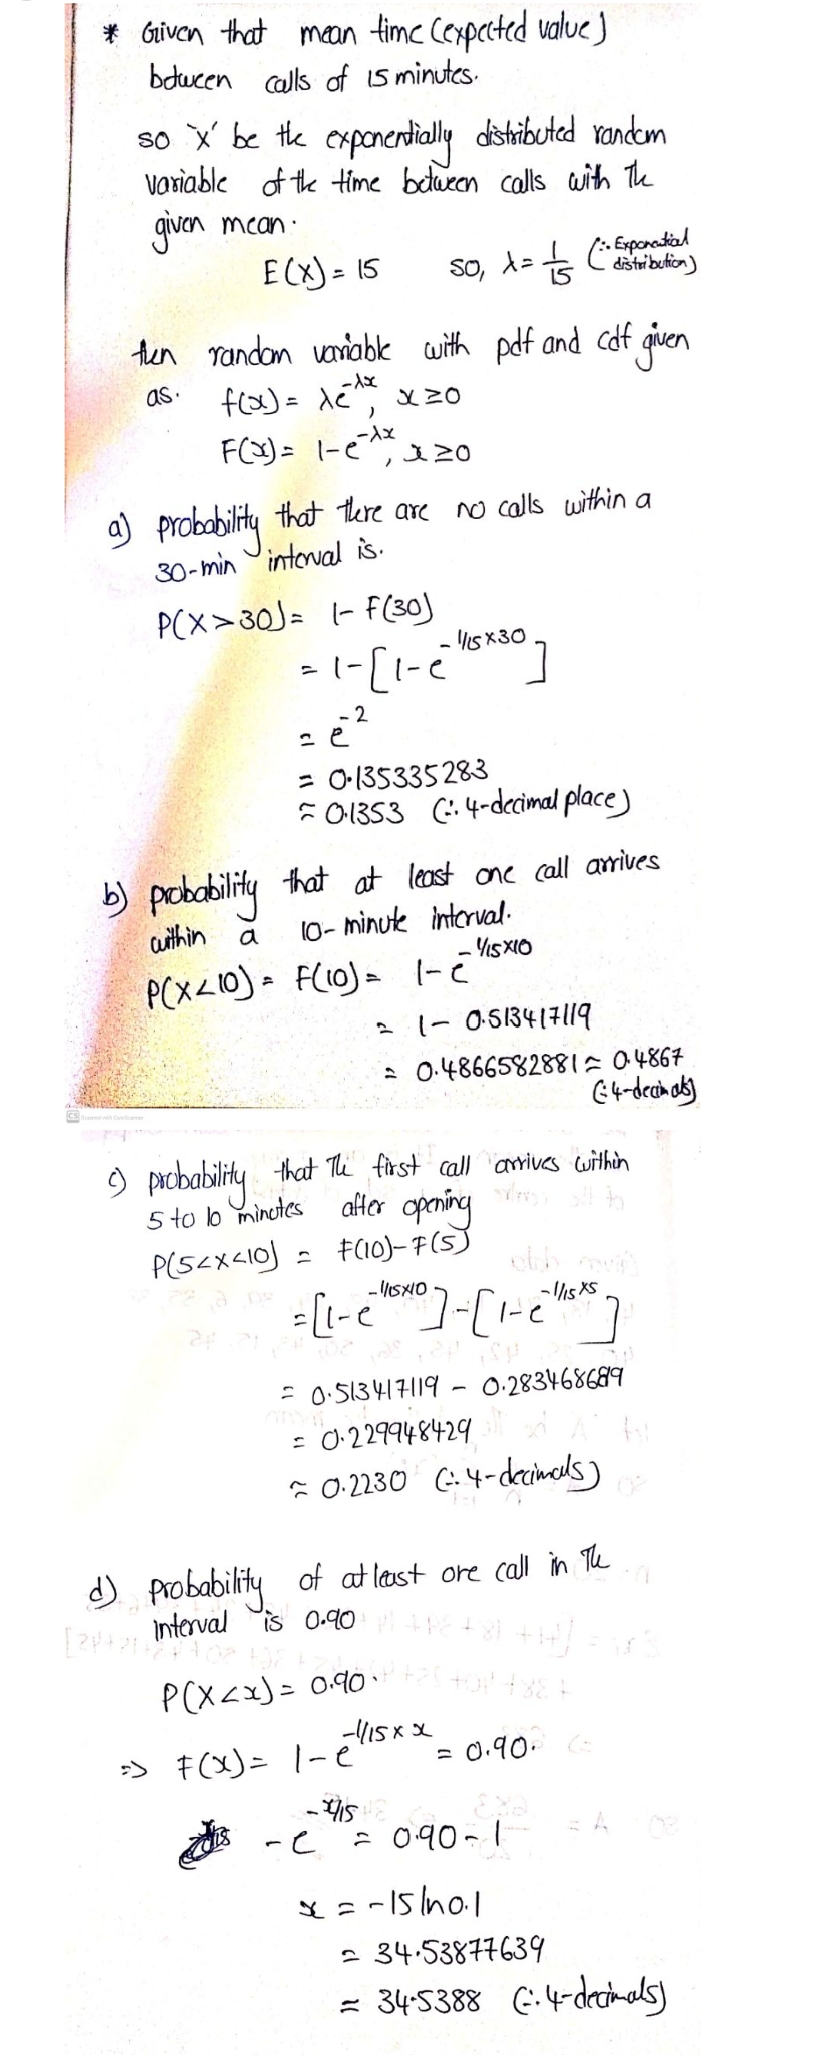 * Given that mean time (expected value)
between calls of 15 minutes.
so 'x' be the exponentially distributed random
variable of the time between calls with the
given mean.
E(X) = 15 so, λ = 1/15 (∵ Exponential distribution)
then random variable with pdf and cdf given
as. f(x) = λe^-λx, x ≥ 0
F(x) = 1-e^-λx, x ≥ 0
a) probability that there are no calls within a
30-min interval is.
P(X>30) = 1- F(30)
= 1-[1-e^-1/15×30]
= e^-2
= 0.135335283
≈ 0.1353 (∵ 4-decimal place)
b) probability that at least one call arrives
within a 10-minute interval.
P(X<10) = F(10) = 1-e^-1/15×10
= 1- 0.513417119
= 0.4866582881 ≈ 0.4867
(∵ 4-decimals)
CS Scanned with CamScanner
c) probability that the first call arrives within
5 to 10 minutes after opening
P(5<x<10) = F(10)-F(5)
= [1-e^-1/15×10]-[1-e^-1/15×5]
= 0.513417119 - 0.283468689
= 0.229948429
≈ 0.2230 (∵ 4-decimals)
d) probability of atleast one call in the
interval is 0.90
P(X<x) = 0.90.
⇒ F(x) = 1-e^-1/15×x = 0.90.
-e^-x/15 = 0.90-1
x = -15 ln0.1
= 34.53877639
= 34.5388 (∵ 4-decimals)